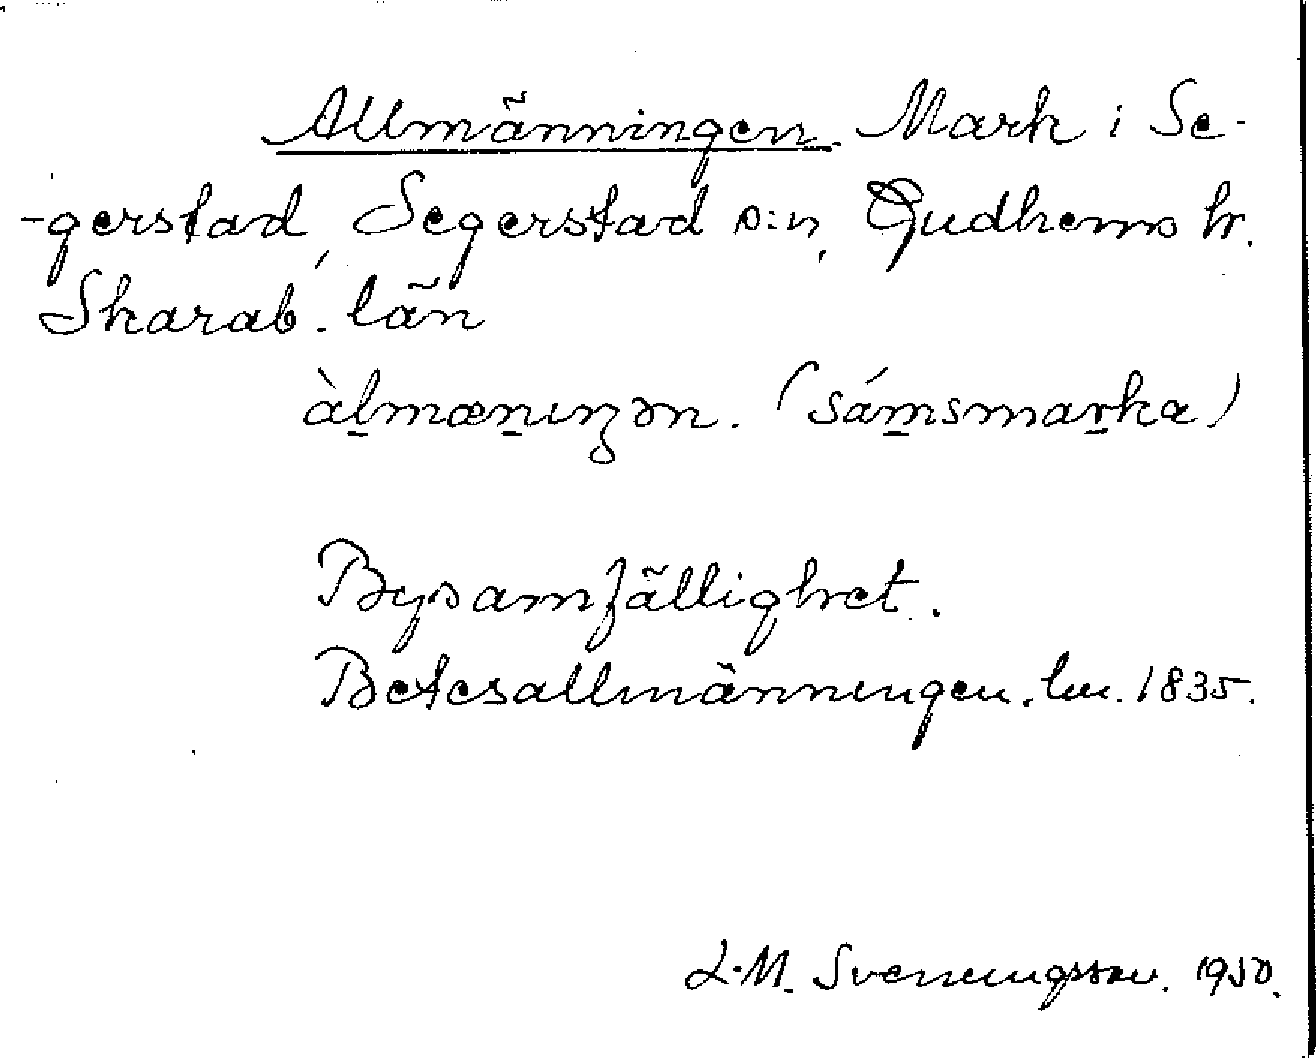 Allmänningen. Mark i Se-
-gerstad, Segerstad s:n, Gudhems hr.
Skarab. län
àl̠mæn̠ıŋən. (sám̠smar̠ka)
Bysamfällighet.
Betesallmänningen. lm. 1835.
L.M. Svenningsson. 1950.